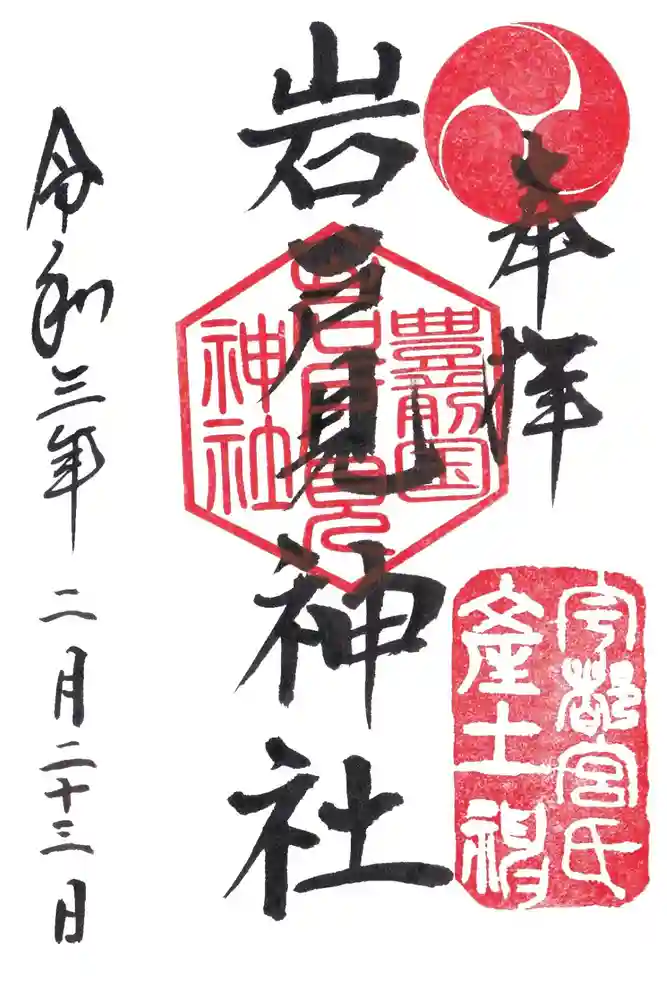 奉拝
宇都宮氏
産土神
岩戸見神社
豊前国
岩戸見
神社
令和三年 二月二十三日